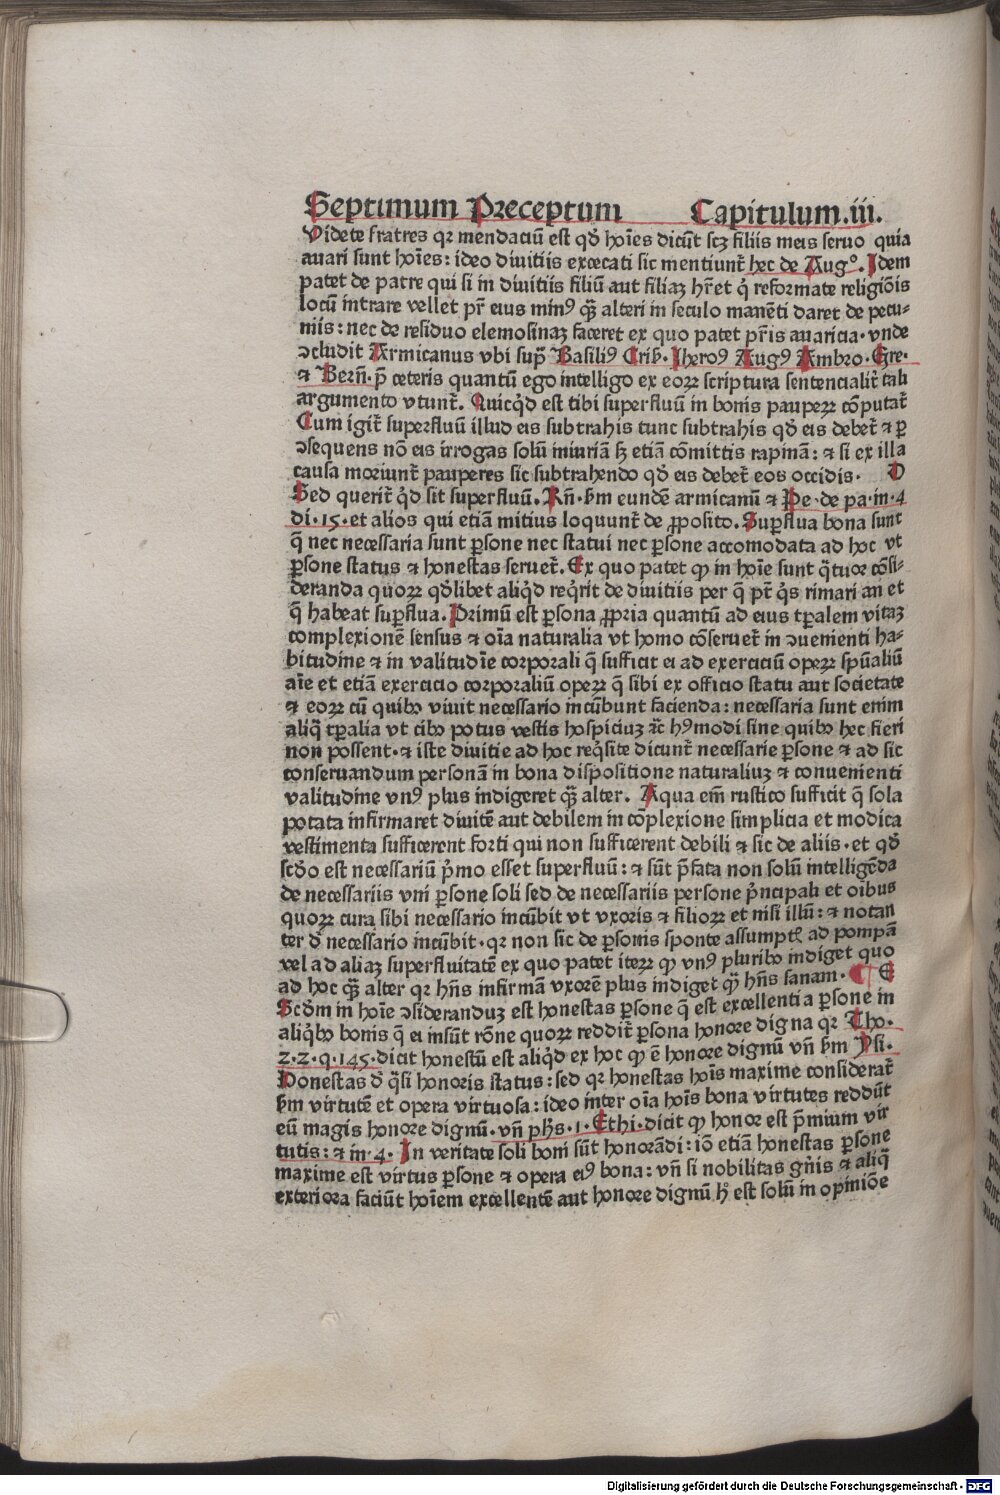 Septimum Preceptum Capitulum.iii.
Videte fratres qꝛ mendaciū est qđ hoīes dicūt scꝫ filiis meis seruo quia
auari sunt hoīes: ideo diuitiis excecati sic mentiunt᷑ hec de Augᵒ. Idem
patet de patre qui si in diuitiis filiū aut filiaꝫ hr̄et q̇ reformate religiōis
locū intrare vellet pr̄ eius minꝰ qꝫ̄ alteri in seculo manēti daret de pecu-
niis: nec de residuo elemosinaꝫ faceret ex quo patet pr̄is auaricia. vnde
ↄcludit Armicanus vbi sup̄ Basiliꝰ Criß. Iheroꝰ Augꝰ Ambro. Gre.
⁊ Bern̄. p̄ ceteris quantū ego intelligo ex eoꝝ scriptura sentencialit᷑ tali
argumento vtunt᷑. Quicq̇d est tibi superfluū in bonis paupeꝝ cōputat᷑
Cum igit᷑ superfluū illud eis subtrahis tunc subtrahis qđ eis debet᷑ ⁊ ꝑ
ↄsequens nō eis irrogas solū iniuriā sꝫ etiā cōmittis rapinā: ⁊ si ex illa
causa moriunt᷑ pauperes sic subtrahendo qđ eis debet᷑ eos occidis. D
Sed querit᷑ q̇d sit superfluū. Rn̄. ẜm eundē armicanū ⁊ Pe. de pa. in. 4
di. 15. et alios qui etiā mitius loquunt᷑ de ꝓposito. Suꝑflua bona sunt
q̄ nec necessaria sunt ꝑsone nec statui nec ꝑsone accomodata ad hoc vt
ꝑsone status ⁊ honestas seruet᷑. Ex quo patet ꝙ in hoīe sunt q̄tuor cōsi-
deranda quoꝝ qđlibet aliq̇d req̇rit de diuitiis per q̄ pt̄ q̇s rimari an et
q̄ habeat suꝑflua. Primū est ꝑsona ꝓpria quantū ad eius tꝑalem vitaꝫ
complexionē sensus ⁊ oīa naturalia vt homo cōseruet᷑ in ↄuenienti ha-
bitudine ⁊ in valitudīe corporali q̄ sufficit ei ad exerciciū opeꝝ spūaliū
aīe et etiā exercicio corporaliū opeꝝ q̄ sibi ex officio statu aut societate
⁊ eoꝝ cū quibꝰ viuit necessario incūbunt facienda: necessaria sunt enim
aliq̄ tꝑalia vt cibꝰ potus vestis hospiciuꝫ ⁊c̄ hꝰmodi sine quibꝰ hec fieri
non possent. ⁊ iste diuitie ad hoc req̇site dicunt᷑ necessarie ꝑsone ⁊ ad sic
conseruandum personā in bona dispositione naturaliuꝫ ⁊ conuenienti
valitudine vnꝰ plus indigeret qꝫ̄ alter. Aqua em̄ rustico sufficit q̄ sola
potata infirmaret diuitē aut debilem in cōplexione simplicia et modica
vestimenta sufficerent forti qui non sufficerent debili ⁊ sic de aliis. et qđ
scđo est necessariū ṗmo esset superfluū: ⁊ sūt p̄fata non solū intelligēda
de necessariis vni ꝑsone soli sed de necessariis persone ṗncipali et oībus
quoꝝ cura sibi necessario incūbit vt vxoris ⁊ filioꝝ et nisi illū: ⁊ notan
ter đ necessario incūbit. qꝛ non sic de ꝑsonis sponte assumptꝭ ad pompā
vel ad aliaꝫ superfluitatē ex quo patet iteꝝ ꝙ vnꝰ pluribꝰ indiget quo
ad hoc qꝫ̄ alter qꝛ hn̄s infirmā vxorē plus indiget qꝫ̄ hn̄s sanam. ¶ E
Scđm in hoīe ↄsideranduꝫ est honestas ꝑsone q̄ est excellentia ꝑsone in
aliq̇bꝰ bonis q̄ ei insūt rōne quoꝝ reddit᷑ ꝑsona honore digna qꝛ Tho.
2. 2. q. 145. dicit honestū est aliq̇d ex hoc ꝙ ē honore dignū vn̄ ẜm Ysi.
Honestas đ q̄si honoris status: sed qꝛ honestas hoīs maxime considerat᷑
ẜm virtutē et opera virtuosa: ideo inter oīa hoīs bona virtutes reddūt
eū magis honore dignū. vn̄ phs̄. 1. Ethi. dicit ꝙ honor est p̄mium vir
tutis: ⁊ in. 4. In veritate soli boni sūt honorādi: iō etiā honestas ꝑsone
maxime est virtus ꝑsone ⁊ opera eiꝰ bona: vn̄ si nobilitas gn̄is ⁊ aliq̄
exteriora faciūt hoīem excellentē aut honore dignū hꝭ est solū in opiniōe
Digitalisierung gefördert durch die Deutsche Forschungsgemeinschaft - DFG